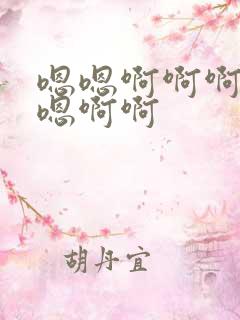 嗯嗯啊啊啊
嗯啊啊
胡丹宜